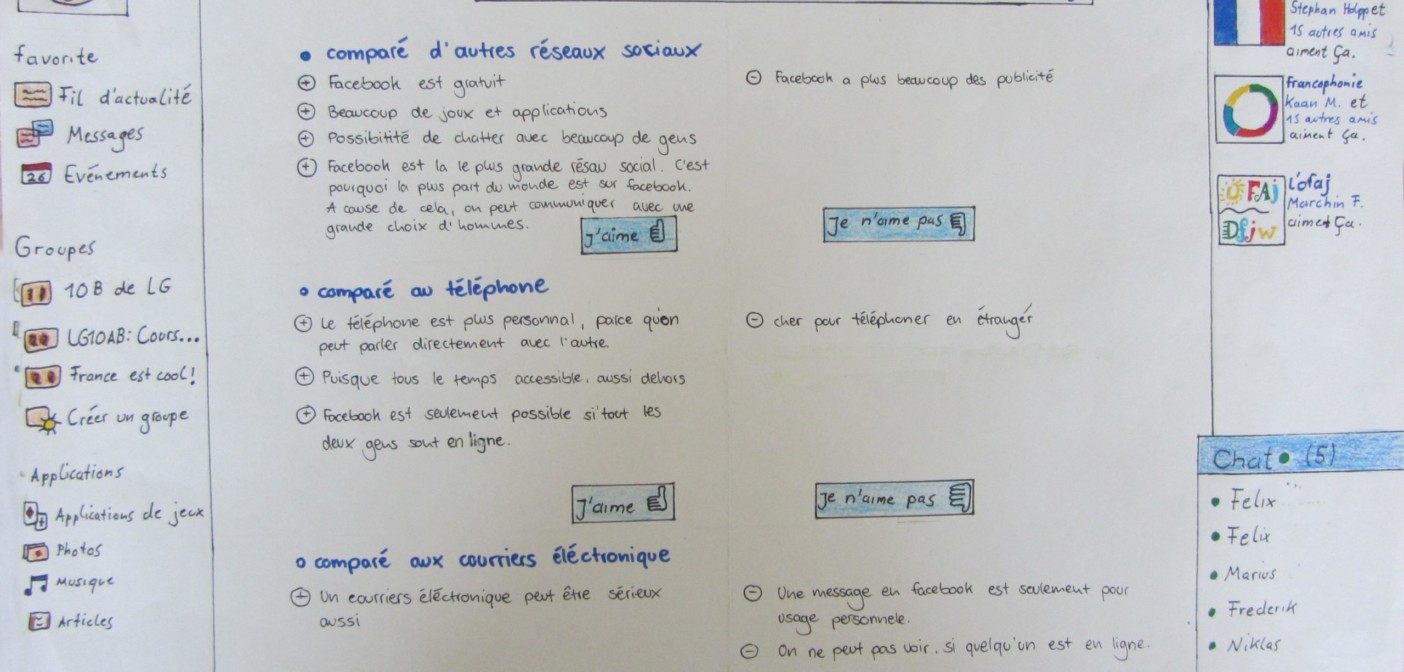 favorite
Fil d'actualité
Messages
26
Evénements
Groupes
10B de LG
LG10AB: Cours...
France est cool!
Créer un groupe
Applications
Applications de jeux
Photos
Musique
Articles
• comparé d'autres réseaux sociaux
+ Facebook est gratuit
+ Beaucoup de joux et applications
+ Possibitité de chatter avec beaucoup de gens
+ Facebook est la le plus grande résau social. C'est
pourquoi la plus part du monde est sur facebook.
A cause de cela, on peut communiquer avec une
grande choix d'hommes.
J'aime
- Facebook a plus beaucoup des publicité
Je n'aime pas
• comparé au téléphone
+ Le téléphone est plus personnal, parce qu'on
peut parler directement avec l'autre.
+ Puisque tous le temps accessible, aussi dehors
+ Facebook est seulement possible si tout les
deux gens sont en ligne.
J'aime
- cher pour téléphoner en étranger
Je n'aime pas
• comparé aux courriers éléctronique
+ Un courriers éléctronique peut être sérieux
aussi
- Une message en facebook est seulement pour
usage personnele.
- On ne peut pas voir, si quelqu'un est en ligne.
Stephan Holpp et
15 autres amis
aiment ça.
Francophonie
Kaan M. et
15 autres amis
aiment ça.
OFAJ
Dfjw
L'ofaj
Marchin F.
aiment ça.
Chat • (5)
• Felix
• Felix
• Marius
• Frederik
• Niklas